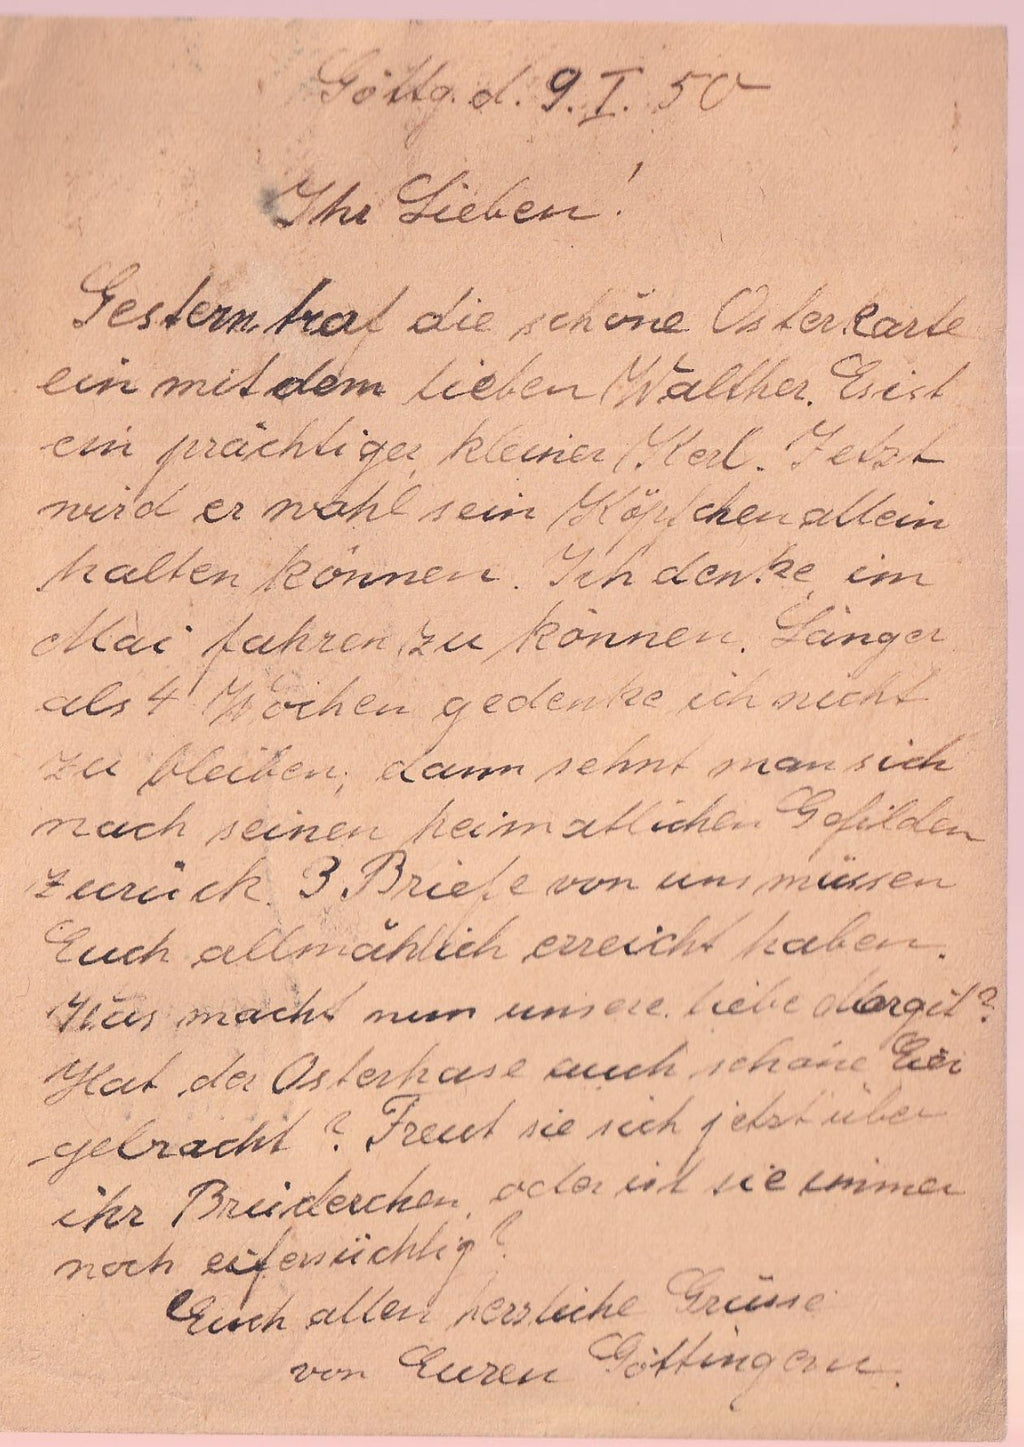 Göttg. d. 9. I. 50
Ihr Lieben!
Gestern traf die schöne Osterkarte
ein mit dem lieben Walther. Es ist
ein prächtiger kleiner Kerl. Jetzt
wird er wohl sein Köpfchen allein
halten können. Ich denke, im
Mai fahren zu können. Länger
als 4 Wochen gedenke ich nicht
zu bleiben, dann sehnt man sich
nach seinen heimatlichen Gefilden
zurück. 3 Briefe von uns müssen
Euch allmählich erreicht haben.
Was macht nun unsere liebe Margit?
Hat der Osterhase auch schöne Eier
gebracht? Freut sie sich jetzt über
ihr Brüderchen, oder ist sie immer
noch eifersüchtig?
Euch allen herzliche Grüsse
von Euren Göttingern.